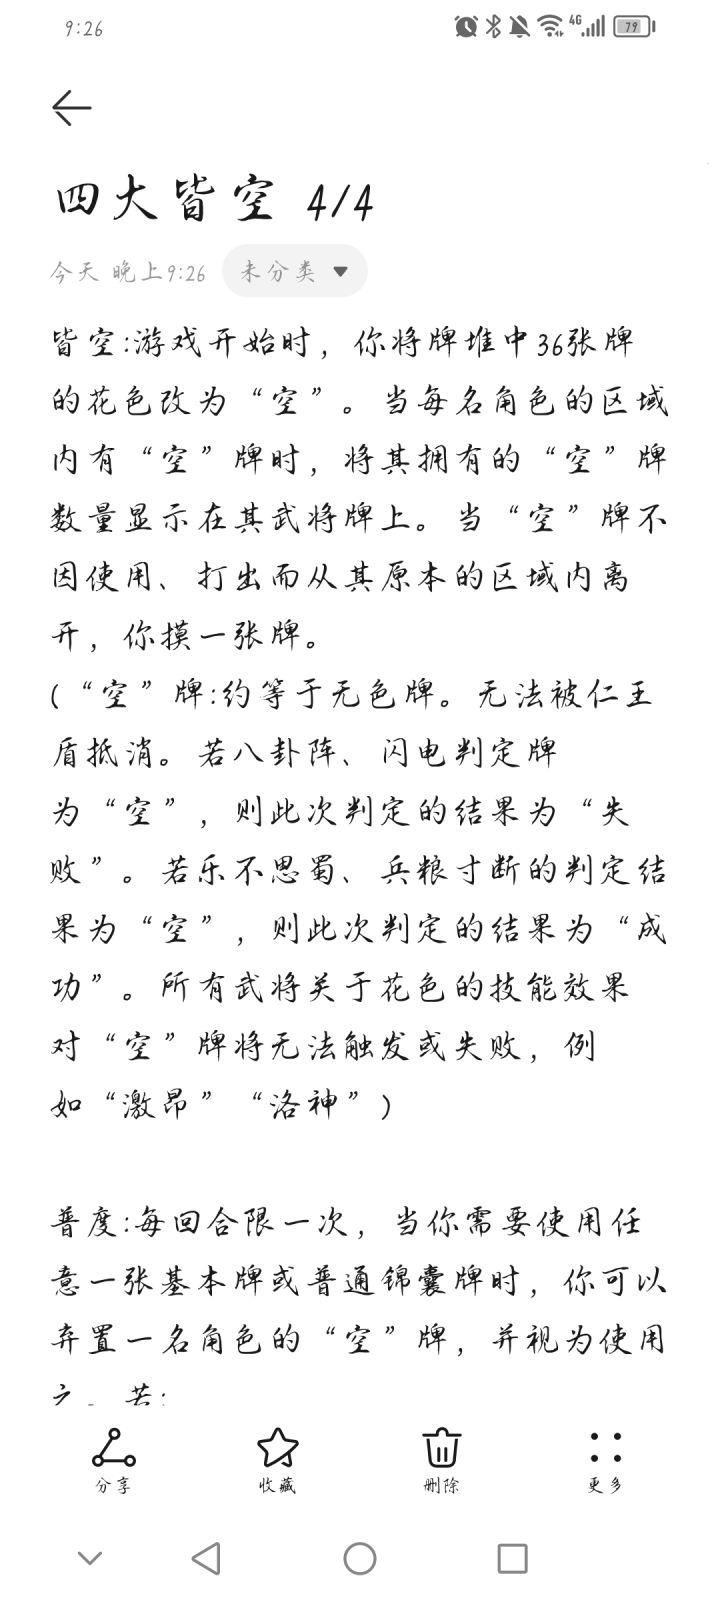 9:26
4G
79
四大皆空 4/4
今天 晚上9:26 未分类
皆空:游戏开始时，你将牌堆中36张牌
的花色改为“空”。当每名角色的区域
内有“空”牌时，将其拥有的“空”牌
数量显示在其武将牌上。当“空”牌不
因使用、打出而从其原本的区域内离
开，你摸一张牌。
(“空”牌:约等于无色牌。无法被仁王
盾抵消。若八卦阵、闪电判定牌
为“空”，则此次判定的结果为“失
败”。若乐不思蜀、兵粮寸断的判定结
果为“空”，则此次判定的结果为“成
功”。所有武将关于花色的技能效果
对“空”牌将无法触发或失败，例
如“激昂”“洛神”)
普度:每回合限一次，当你需要使用任
意一张基本牌或普通锦囊牌时，你可以
弃置一名角色的“空”牌，并视为使用
之。若:
分享
收藏
删除
更多